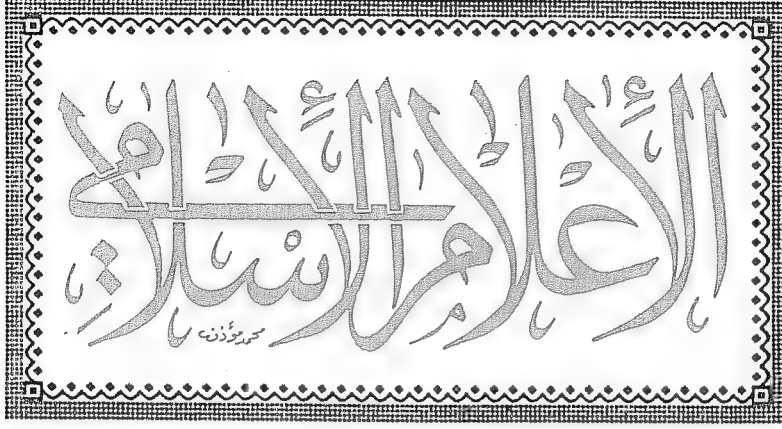 الإعلام الإسلامي
محمد مؤذن